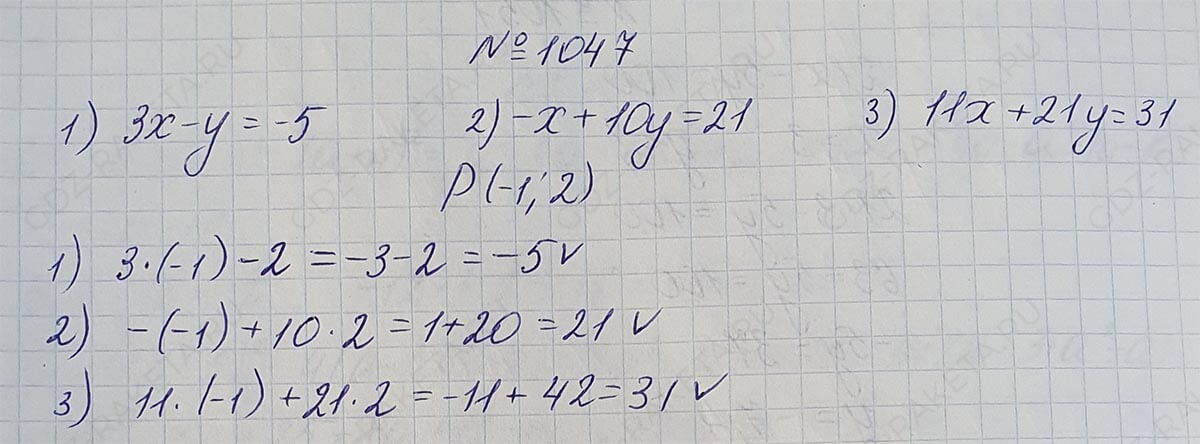 № 1047
1) 3x-y=-5 2) -x+10y=21 3) 11x+21y=31
P(-1; 2)
1) 3·(-1)-2=-3-2=-5✓
2) -(-1)+10·2=1+20=21✓
3) 11·(-1)+21·2=-11+42=31✓